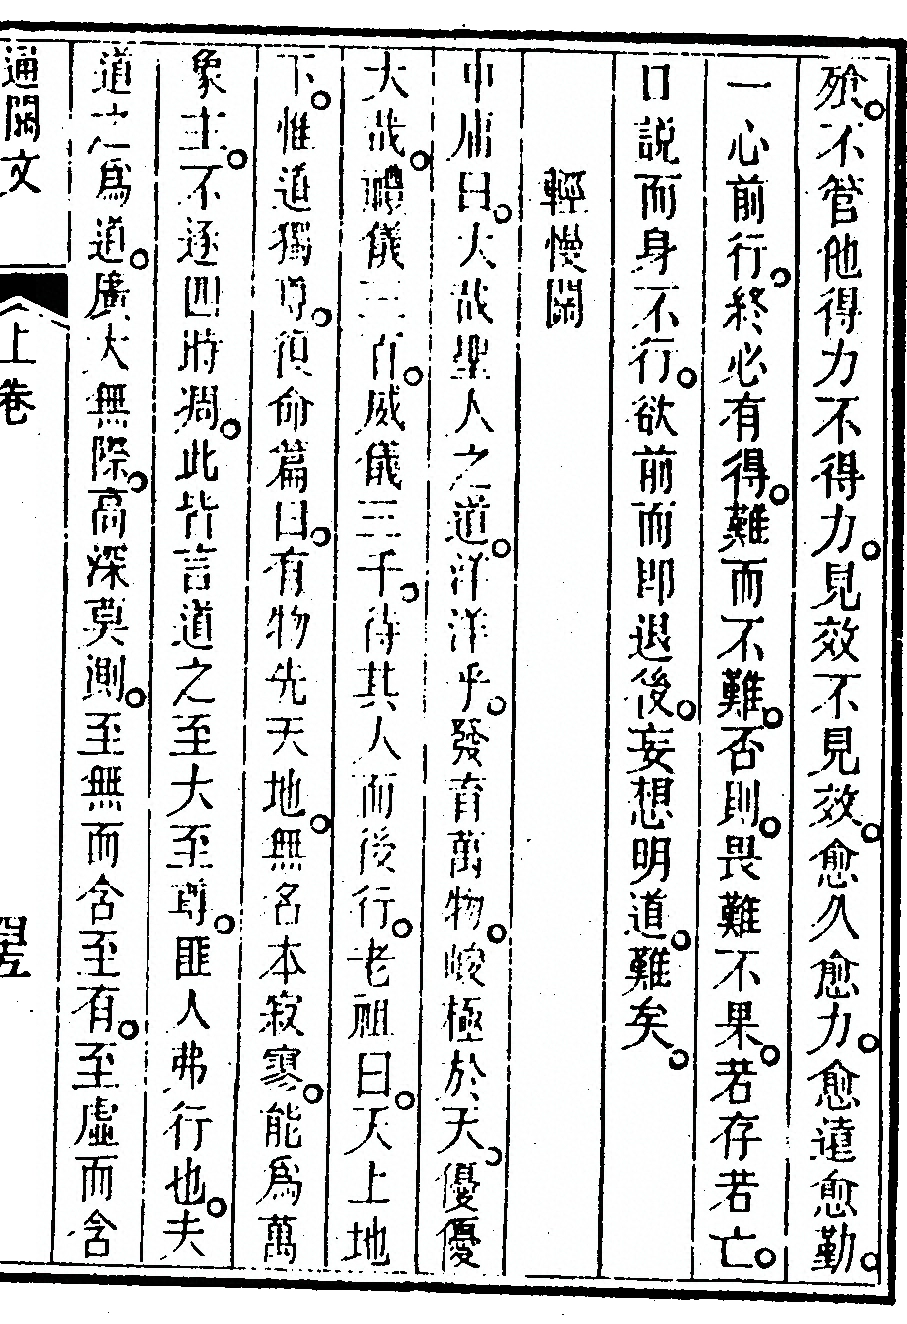 飱。不管他得力不得力。見效不見效。愈久愈力。愈遠愈勤。
一心前行。終必有得。難而不難。否則。畏難不果。若存若亡。
口說而身不行。欲前而即退後。妄想明道。難矣。
輕慢關
中庸曰。大哉聖人之道。洋洋乎。發育萬物。峻極於天。優優
大哉。禮儀三百。威儀三千。待其人而後行。老祖曰。天上地
下。惟道獨尊。復命篇曰。有物先天地。無名本寂寥。能爲萬
象主。不逐四時凋。此皆言道之至大至尊。匪人弗行也。夫
道之爲道。廣大無際。高深莫測。至無而含至有。至虛而含
通關文
上卷